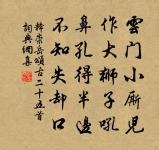 雲門小廝兒
作大獅子吼
鼻孔得半邊
不知失却口
釋崇岳頌古二十五首
詞典網集